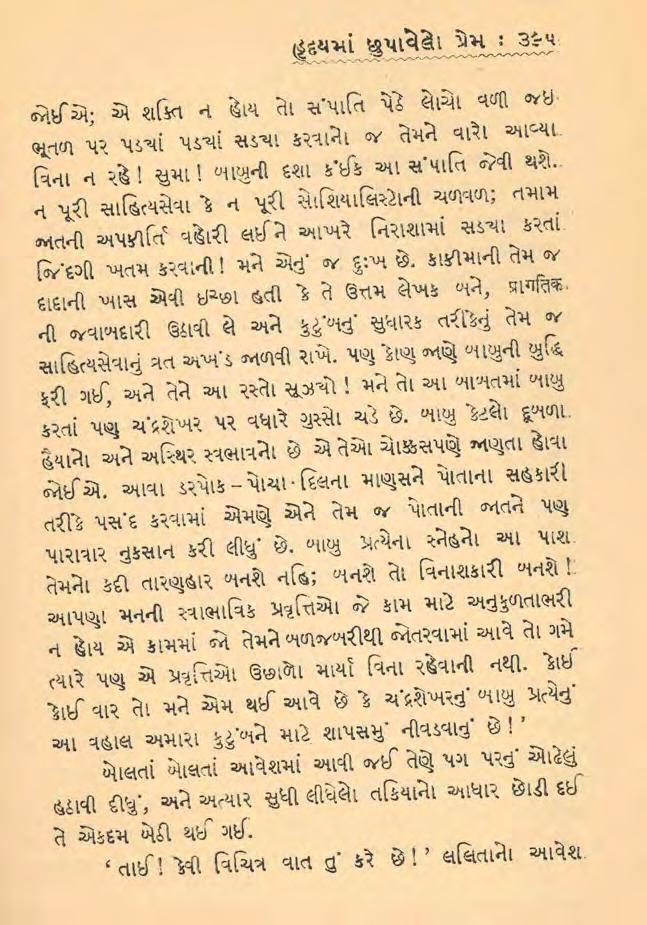 હૃદયમાં છુપાવેલો પ્રેમ : ૩૯૫
જોઈએ; એ શક્તિ ન હોય તો સંપાતિ પેઠે લોચો વળી જઇ
ભૂતળ પર પડ્યાં પડ્યાં સડ્યા કરવાનો જ તેમને વારો આવ્યા
વિના ન રહે! સુમા! બાબુની દશા કંઈક આ સંપાતિ જેવી થશે.
ન પૂરી સાહિત્યસેવા કે ન પૂરી સોશિયાલિસ્ટોની ચળવળ; તમામ
જાતની અપકીર્તિ વહોરી લઈને આખરે નિરાશામાં સડ્યા કરતાં
જિંદગી ખતમ કરવાની! મને એનું જ દુઃખ છે. કાકીમાની તેમ જ
દાદાની ખાસ એવી ઇચ્છા હતી કે તે ઉત્તમ લેખક બને, પ્રાગતિક
ની જવાબદારી ઉઠાવી લે અને કુટુંબનું સુધારક તરીકેનું તેમ જ
સાહિત્યસેવાનું વ્રત અખંડ જાળવી રાખે. પણ કોણ જાણે બાબુની બુદ્ધિ
ફરી ગઈ, અને તેને આ રસ્તો સૂઝ્યો! મને તો આ બાબતમાં બાબુ
કરતાં પણ ચંદ્રશેખર પર વધારે ગુસ્સો ચડે છે. બાબુ કેટલો દૂબળા
હૈયાનો અને અસ્થિર સ્વભાવનો છે એ તેઓ ચોક્કસપણે જાણતા હોવા
જોઈએ. આવા ડરપોક – પોચા દિલના માણસને પોતાના સહકારી
તરીકે પસંદ કરવામાં એમણે એને તેમ જ પોતાની જાતને પણ
પારાવાર નુકસાન કરી લીધું છે. બાબુ પ્રત્યેના સ્નેહનો આ પાશ
તેમનો કદી તારણહાર બનશે નહિ; બનશે તો વિનાશકારી બનશે!
આપણા મનની સ્વાભાવિક પ્રવૃત્તિઓ જે કામ માટે અનુકુળતાભરી
ન હોય એ કામમાં જો તેમને બળજબરીથી જોતરવામાં આવે તો ગમે
ત્યારે પણ એ પ્રવૃત્તિઓ ઉછાળો માર્યા વિના રહેવાની નથી. કોઈ
કોઈ વાર તો મને એમ થઈ આવે છે કે ચંદ્રશેખરનું બાબુ પ્રત્યેનું
આ વહાલ અમારા કુટુંબને માટે શાપસમું નીવડવાનું છે!’
બોલતાં બોલતાં આવેશમાં આવી જઈ તેણે પગ પરનું ઓઢેલું
હઠાવી દીધું, અને અત્યાર સુધી લીધેલો તકિયાનો આધાર છોડી દઈ
તે એકદમ બેઠી થઈ ગઈ.
‘તાઈ! કેવી વિચિત્ર વાત તું કરે છે!’ લલિતાનો આવેશ